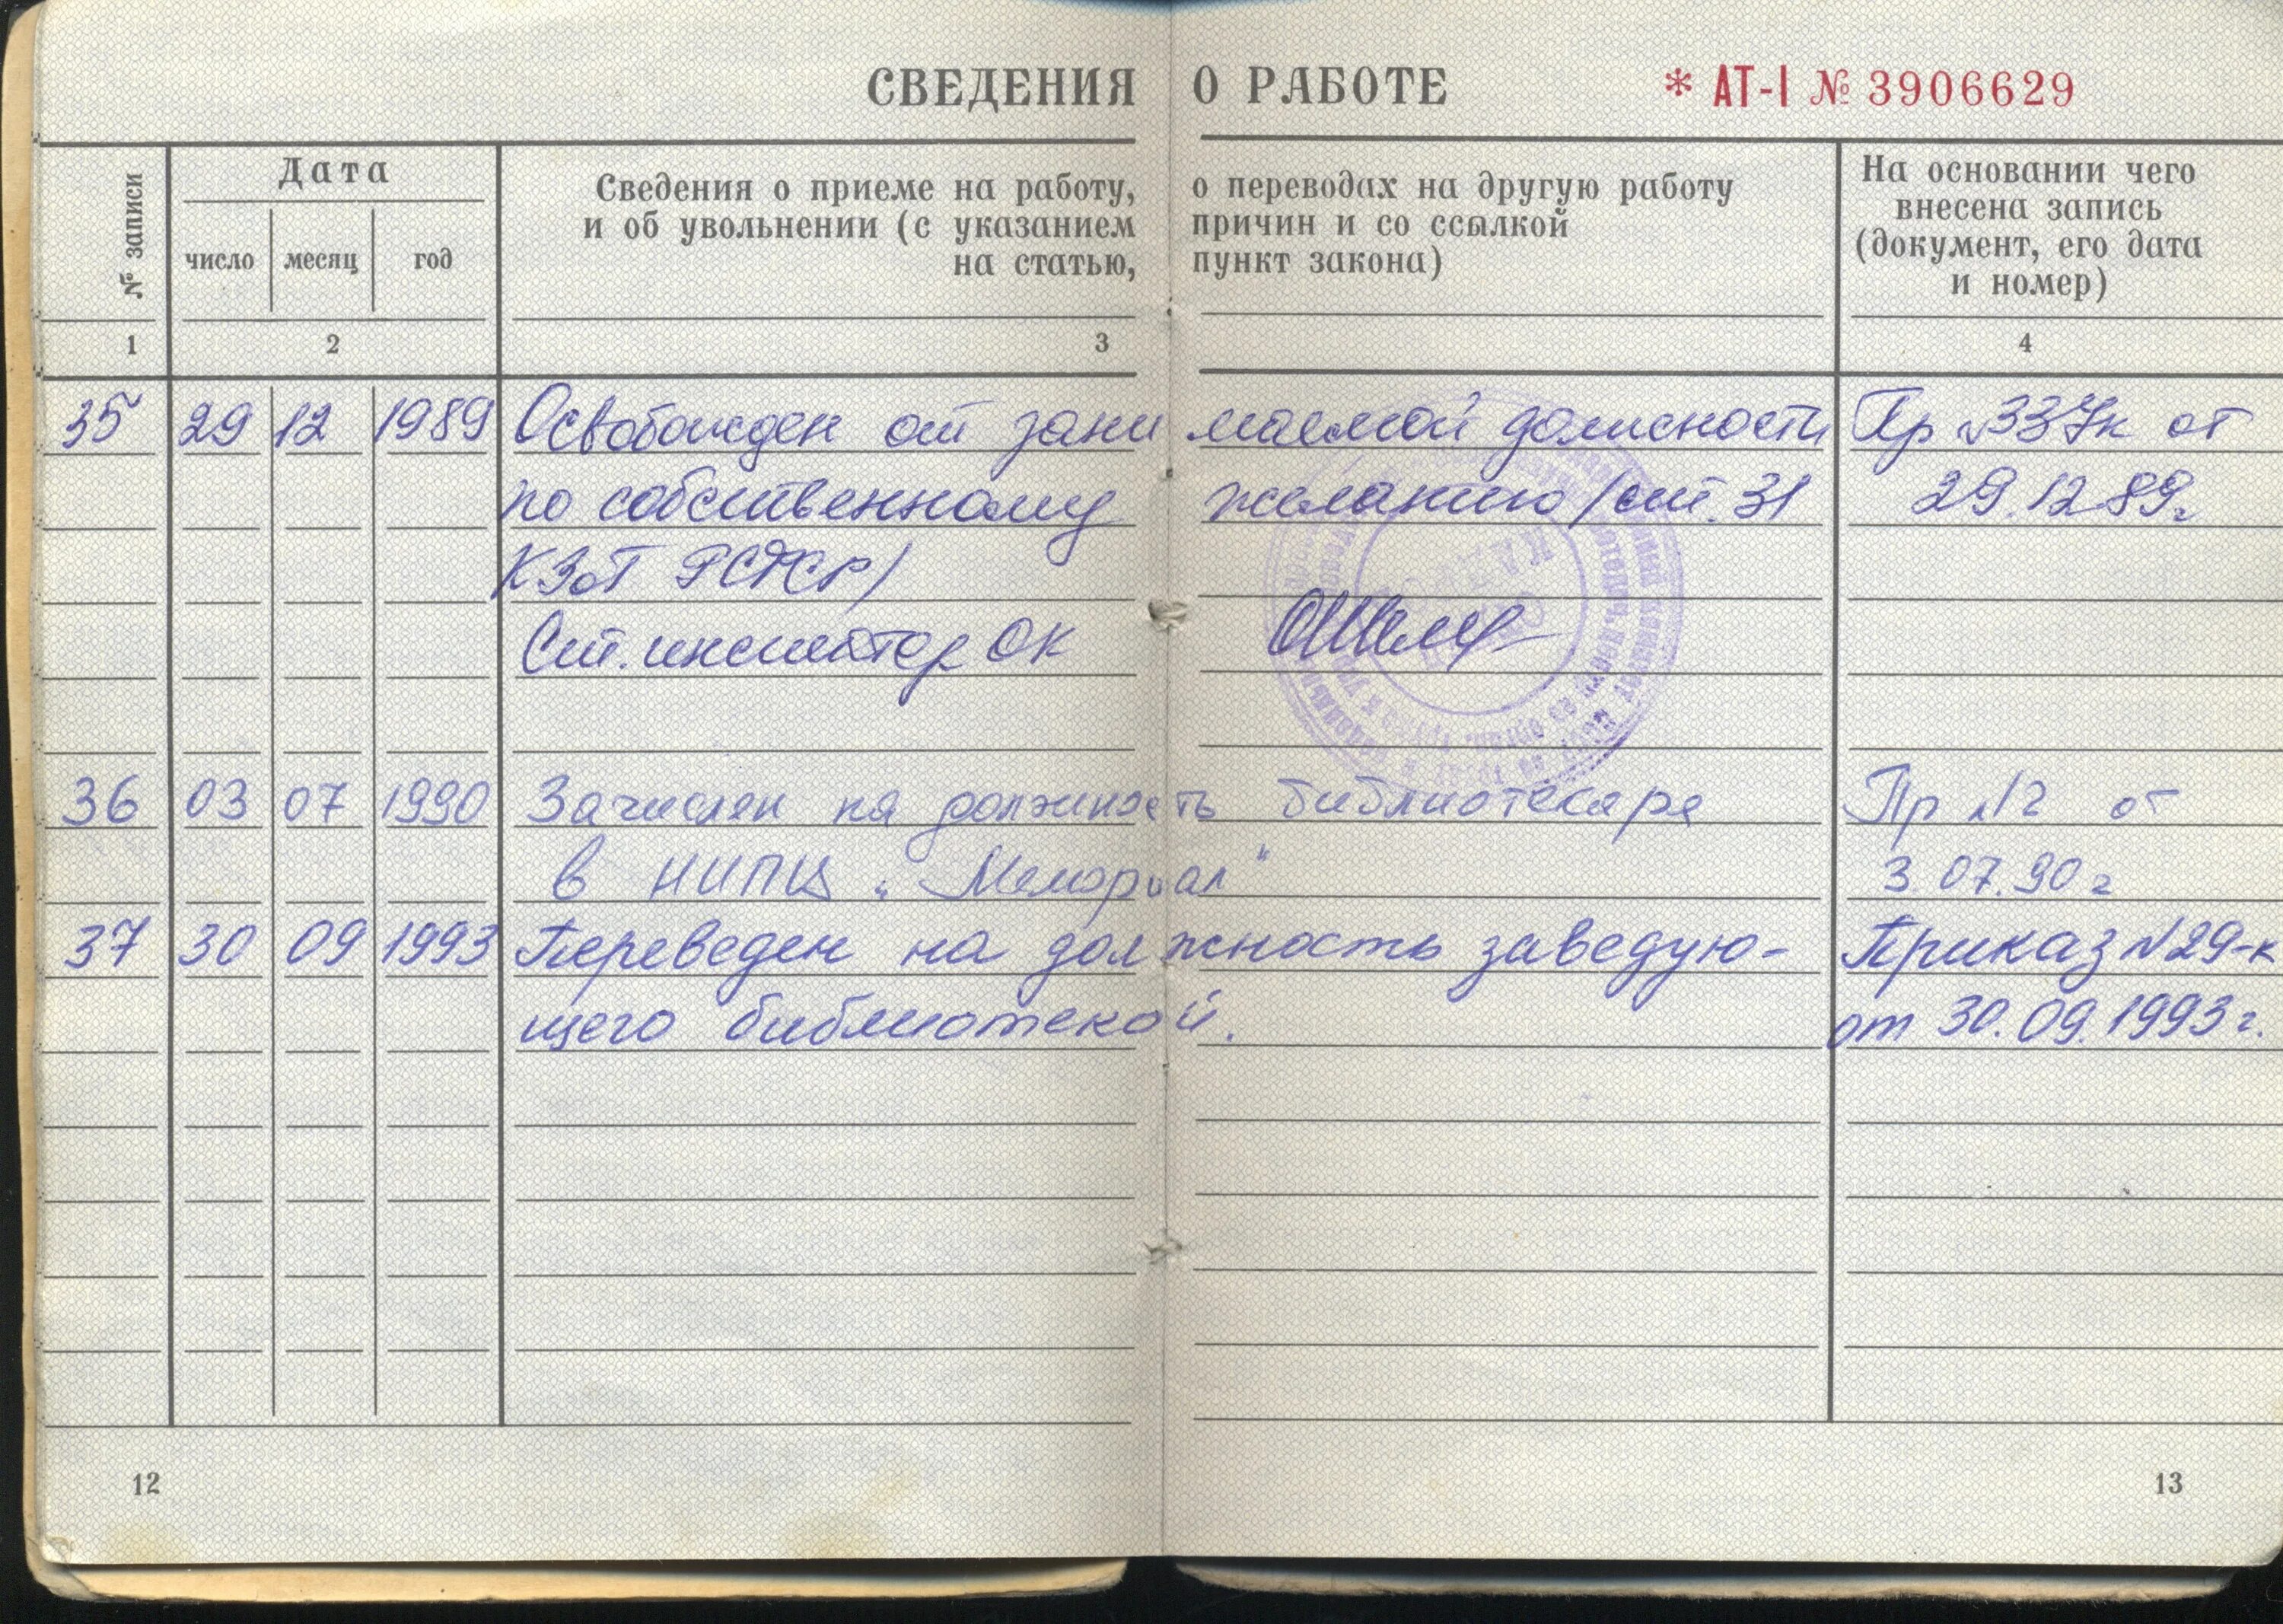 СВЕДЕНИЯ О РАБОТЕ * АТ-I № 3906629
№ записи
Дата
число месяц год
Сведения о приеме на работу, о переводах на другую работу
и об увольнении (с указанием причин и со ссылкой
на статью, пункт закона)
На основании чего
внесена запись
(документ, его дата
и номер)
1 2 3 4
35 29 12 1989 Освобожден от занимаемой должности Пр №337к от
по собственному желанию /ст. 31 29.12.89г
КЗоТ РСФСР/
Ст. инспектор ОК
36 03 07 1990 Зачислен на должность библиотекаря Пр №2 от
в НИПЦ „Мемориал“ 3.07.90г
37 30 09 1993 Переведен на должность заведую- Приказ №29-к
щего библиотекой. от 30.09.1993г.
12 13